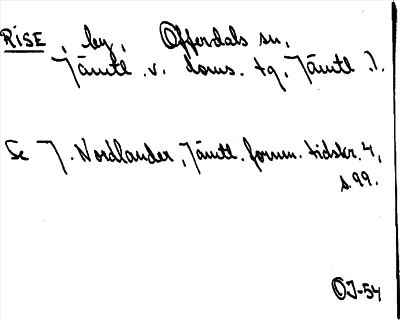 RISE, by, Offerdals sn,
Jämtl. v. doms. tg, Jämtl. l.
Se J. Nordlander, Jämtl. fornm. tidskr. 4,
s. 99.
OJ-54